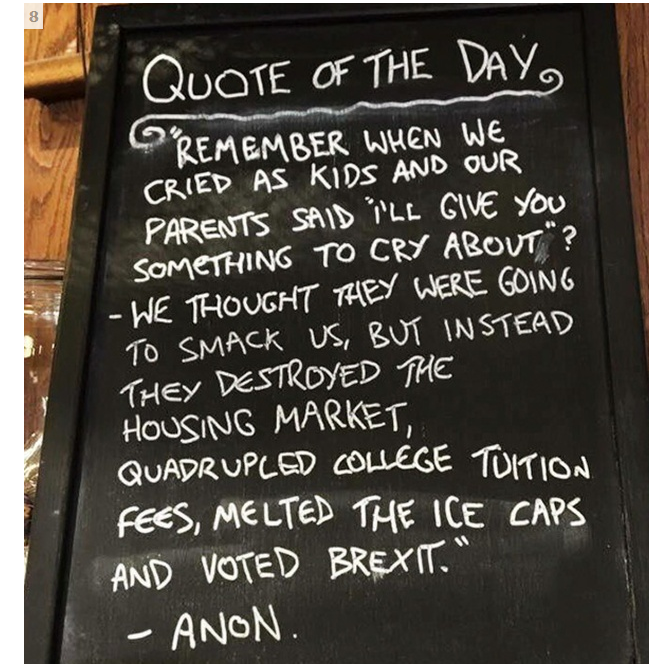 8
QUOTE OF THE DAY
"REMEMBER WHEN WE
CRIED AS KIDS AND OUR
PARENTS SAID "I'LL GIVE YOU
SOMETHING TO CRY ABOUT"?
- WE THOUGHT THEY WERE GOING
TO SMACK US, BUT INSTEAD
THEY DESTROYED THE
HOUSING MARKET,
QUADRUPLED COLLEGE TUITION
FEES, MELTED THE ICE CAPS
AND VOTED BREXIT."
- ANON.